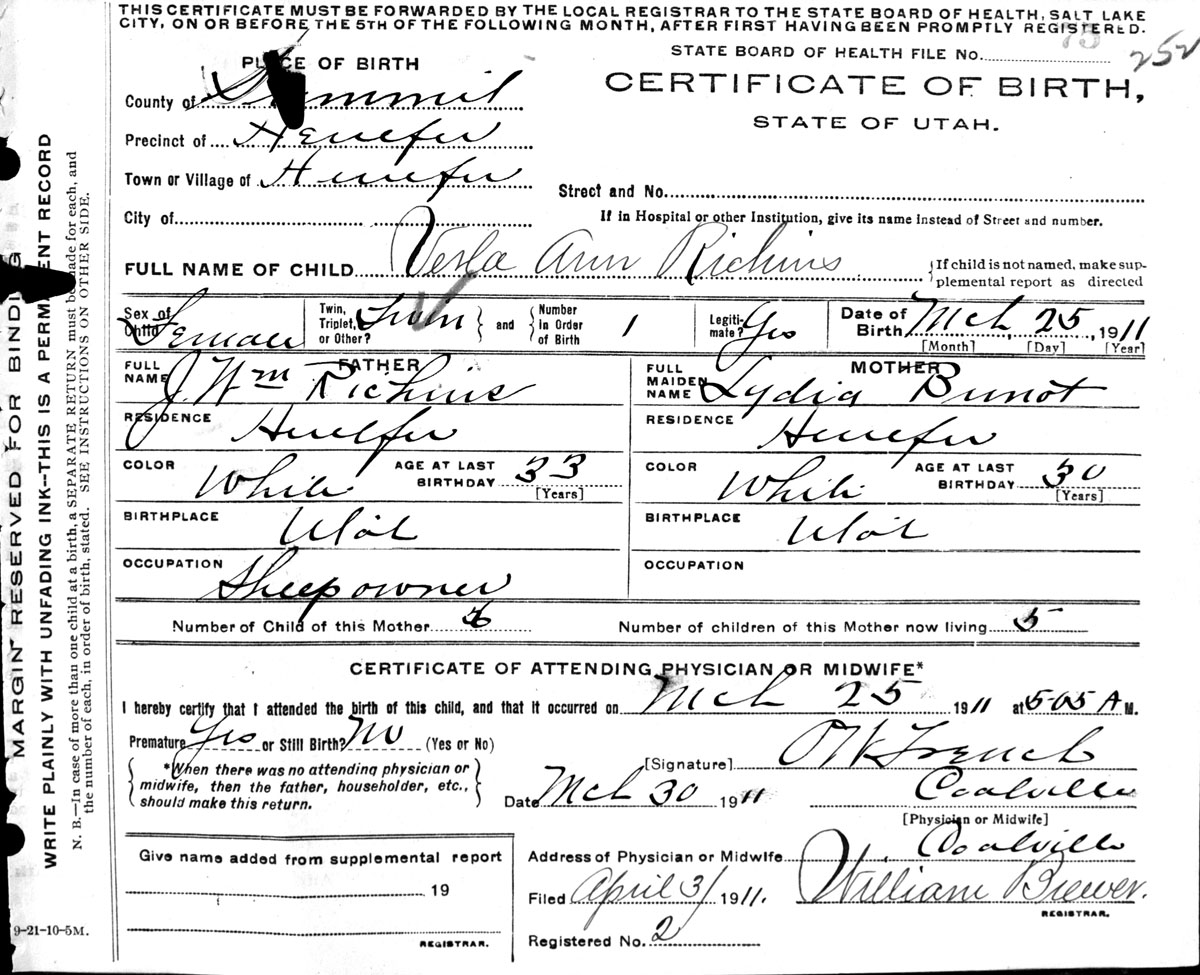 THIS CERTIFICATE MUST BE FORWARDED BY THE LOCAL REGISTRAR TO THE STATE BOARD OF HEALTH, SALT LAKE
CITY, ON OR BEFORE THE 5TH OF THE FOLLOWING MONTH, AFTER FIRST HAVING BEEN PROMPTLY REGISTERED.
75
252
STATE BOARD OF HEALTH FILE No.
PLACE OF BIRTH
CERTIFICATE OF BIRTH,
STATE OF UTAH.
County of Summit
Precinct of Henefer
Town or Village of Henefer
Street and No.
City of
If in Hospital or other Institution, give its name instead of Street and number.
FULL NAME OF CHILD Verla Ann Richins
If child is not named, make sup-
plemental report as directed
Sex of Child Female
Twin, Triplet, or Other? Twin and Number in Order of Birth 1
Legiti-mate? Yes
Date of Birth Mch 25, 1911
[Month] [Day] [Year]
FATHER
FULL NAME J. Wm Richins
RESIDENCE Henefer
COLOR White AGE AT LAST BIRTHDAY 33
[Years]
BIRTHPLACE Utah
OCCUPATION Sheep owner
MOTHER
FULL MAIDEN NAME Lydia
RESIDENCE Henefer
COLOR White AGE AT LAST BIRTHDAY 30
[Years]
BIRTHPLACE Utah
OCCUPATION
Number of Child of this Mother
Number of children of this Mother now living 5
CERTIFICATE OF ATTENDING PHYSICIAN OR MIDWIFE*
I hereby certify that I attended the birth of this child, and that it occurred on Mch 25 1911 at 5-05 A M.
Premature Yes or Still Birth? No (Yes or No)
*When there was no attending physician or
midwife, then the father, householder, etc.,
should make this return.
[Signature] French
Date Mch 30 1911 Coalville
[Physician or Midwife]
Give name added from supplemental report
19
REGISTRAR.
Address of Physician or Midwife Coalville
Filed April 3/ 1911. William Brewer.
REGISTRAR.
Registered No. 2
9-21-10-5M.
MARGIN RESERVED FOR BINDING
WRITE PLAINLY WITH UNFADING INK--THIS IS A PERMANENT RECORD
N. B.—In case of more than one child at a birth, a SEPARATE RETURN must be made for each, and
the number of each, in order of birth, stated. SEE INSTRUCTIONS ON OTHER SIDE.